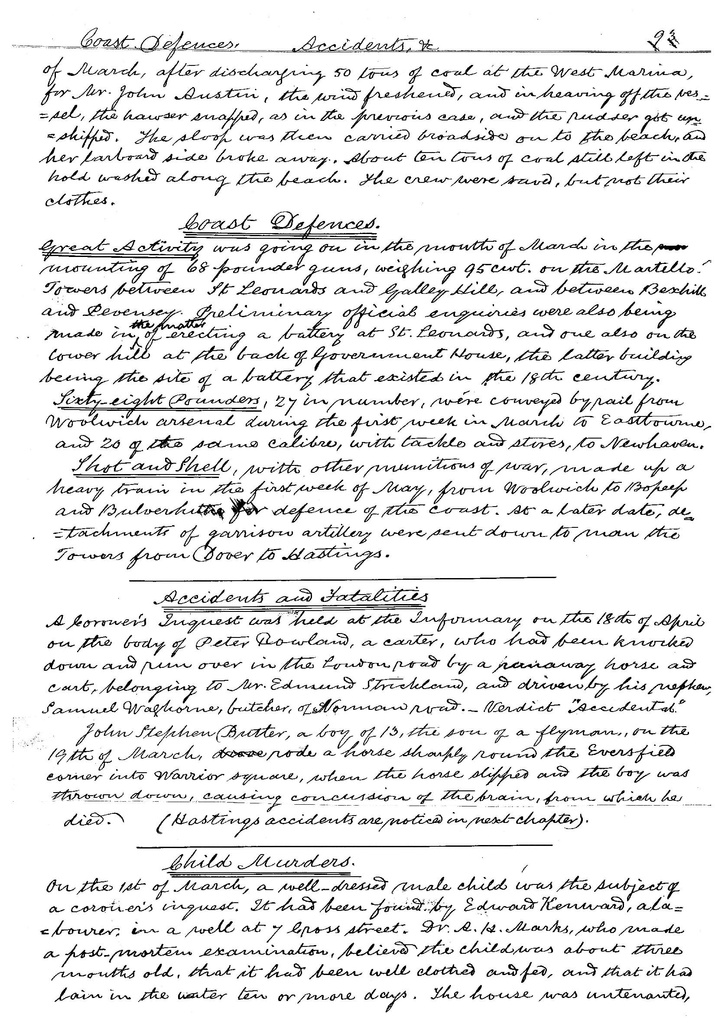 Coast Defences. Accidents, &c. 93
of March, after discharging 50 tons of coal at the West Marina,
for Mr. John Austin, the wind freshened, and in heaving off the ves-
=sel, the hawser snapped, as in the previous case, and the rudder got un-
=shipped. The sloop was then carried broadside on to the beach, and
her larboard side broke away. About ten tons of coal still left in the
hold washed along the beach. The crew were saved, but not their
clothes.
Coast Defences.
Great Activity was going on in the month of March in the
mounting of 68 pounder guns, weighing 95 cwt. on the Martello
Towers between St Leonards and Galley Hill, and between Bexhill
and Pevensey. Preliminary official enquiries were also being
made in the matter of erecting a battery at St. Leonards, and one also on the
lower hill at the back of Government House, the latter building
being the site of a battery that existed in the 18th century.
Sixty-eight Pounders, 27 in number, were conveyed by rail from
Woolwich arsenal during the first week in March to Eastbourne,
and 20 of the same calibre, with tackle and stores, to Newhaven.
Shot and Shell, with other munitions of war, made up a
heavy train in the first week of May, from Woolwich to Bopeep
and Bulverhithe for defence of the coast. At a later date, de=
=tachments of garrison artillery were sent down to man the
Towers from Dover to Hastings.
Accidents and Fatalities
A Coroner's Inquest was held at the Infirmary on the 18th of April
on the body of Peter Dowland, a carter, who had been knocked
down and run over in the London road by a runaway horse and
cart, belonging to Mr. Edmund Strickland, and driven by his nephew,
Samuel Waghorne, butcher, of Norman road. – Verdict "Accidental."
John Stephen Butler, a boy of 13, the son of a flyman, on the
19th of March, rode a horse sharply round the Eversfield
corner into Warrior square, when the horse slipped and the boy was
thrown down, causing concussion of the brain, from which he
died. (Hastings accidents are noticed in next chapter).
Child Murders.
On the 1st of March, a well-dressed male child was the subject of
a coroner's inquest. It had been found by Edward Kenward, a la=
=bourer, in a well at 7 Cross street. Dr. A. H. Marks, who made
a post-mortem examination, believed the child was about three
months old, that it had been well clothed and fed, and that it had
lain in the water ten or more days. The house was untenanted,